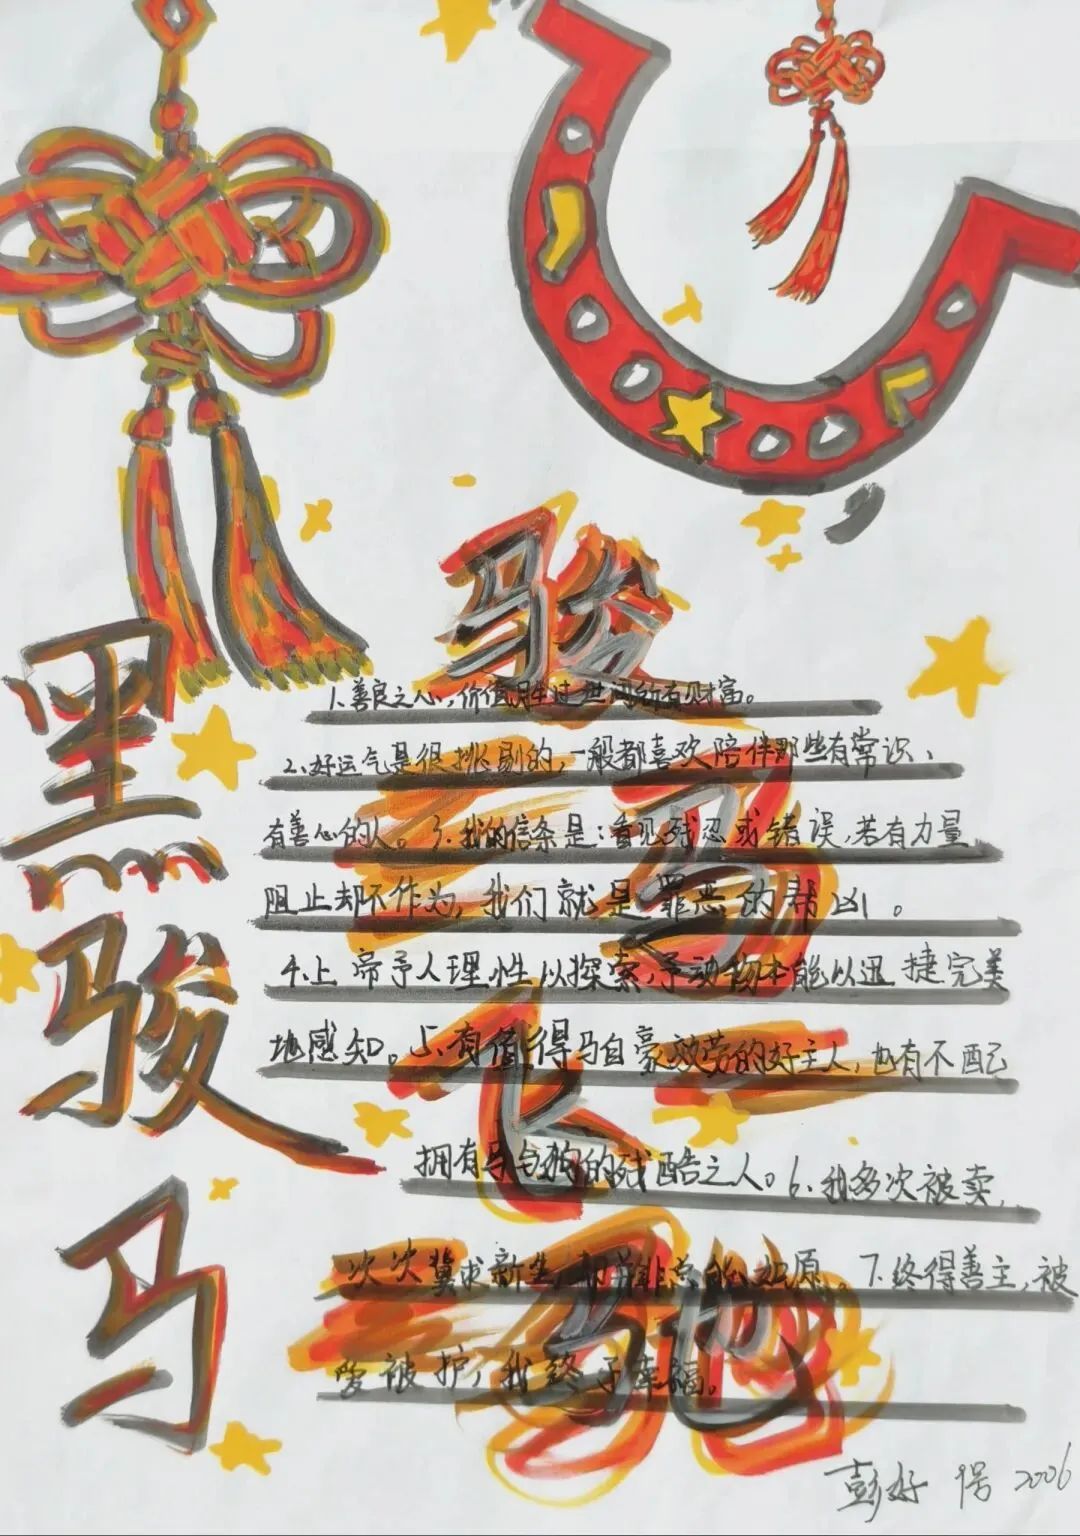 黑骏马
骏马飞驰
1.善良之心，价值胜过世间所有财富。
2.好运气是很挑剔的，一般都喜欢陪伴那些有常识、
有善心的人。3.我的信条是：看见残忍或错误，若有力量
阻止却不作为，我们就是罪恶的帮凶。
4.上帝予人理性以探索，予动物本能以迅捷完美
地感知。5.有值得马自豪效劳的好主人，也有不配
拥有马与狗的残酷之人。6.我多次被卖，
次次冀求新生，却并非总能如愿。7.终得善主，被
爱被护，我终于幸福。
彭好 9号 2006